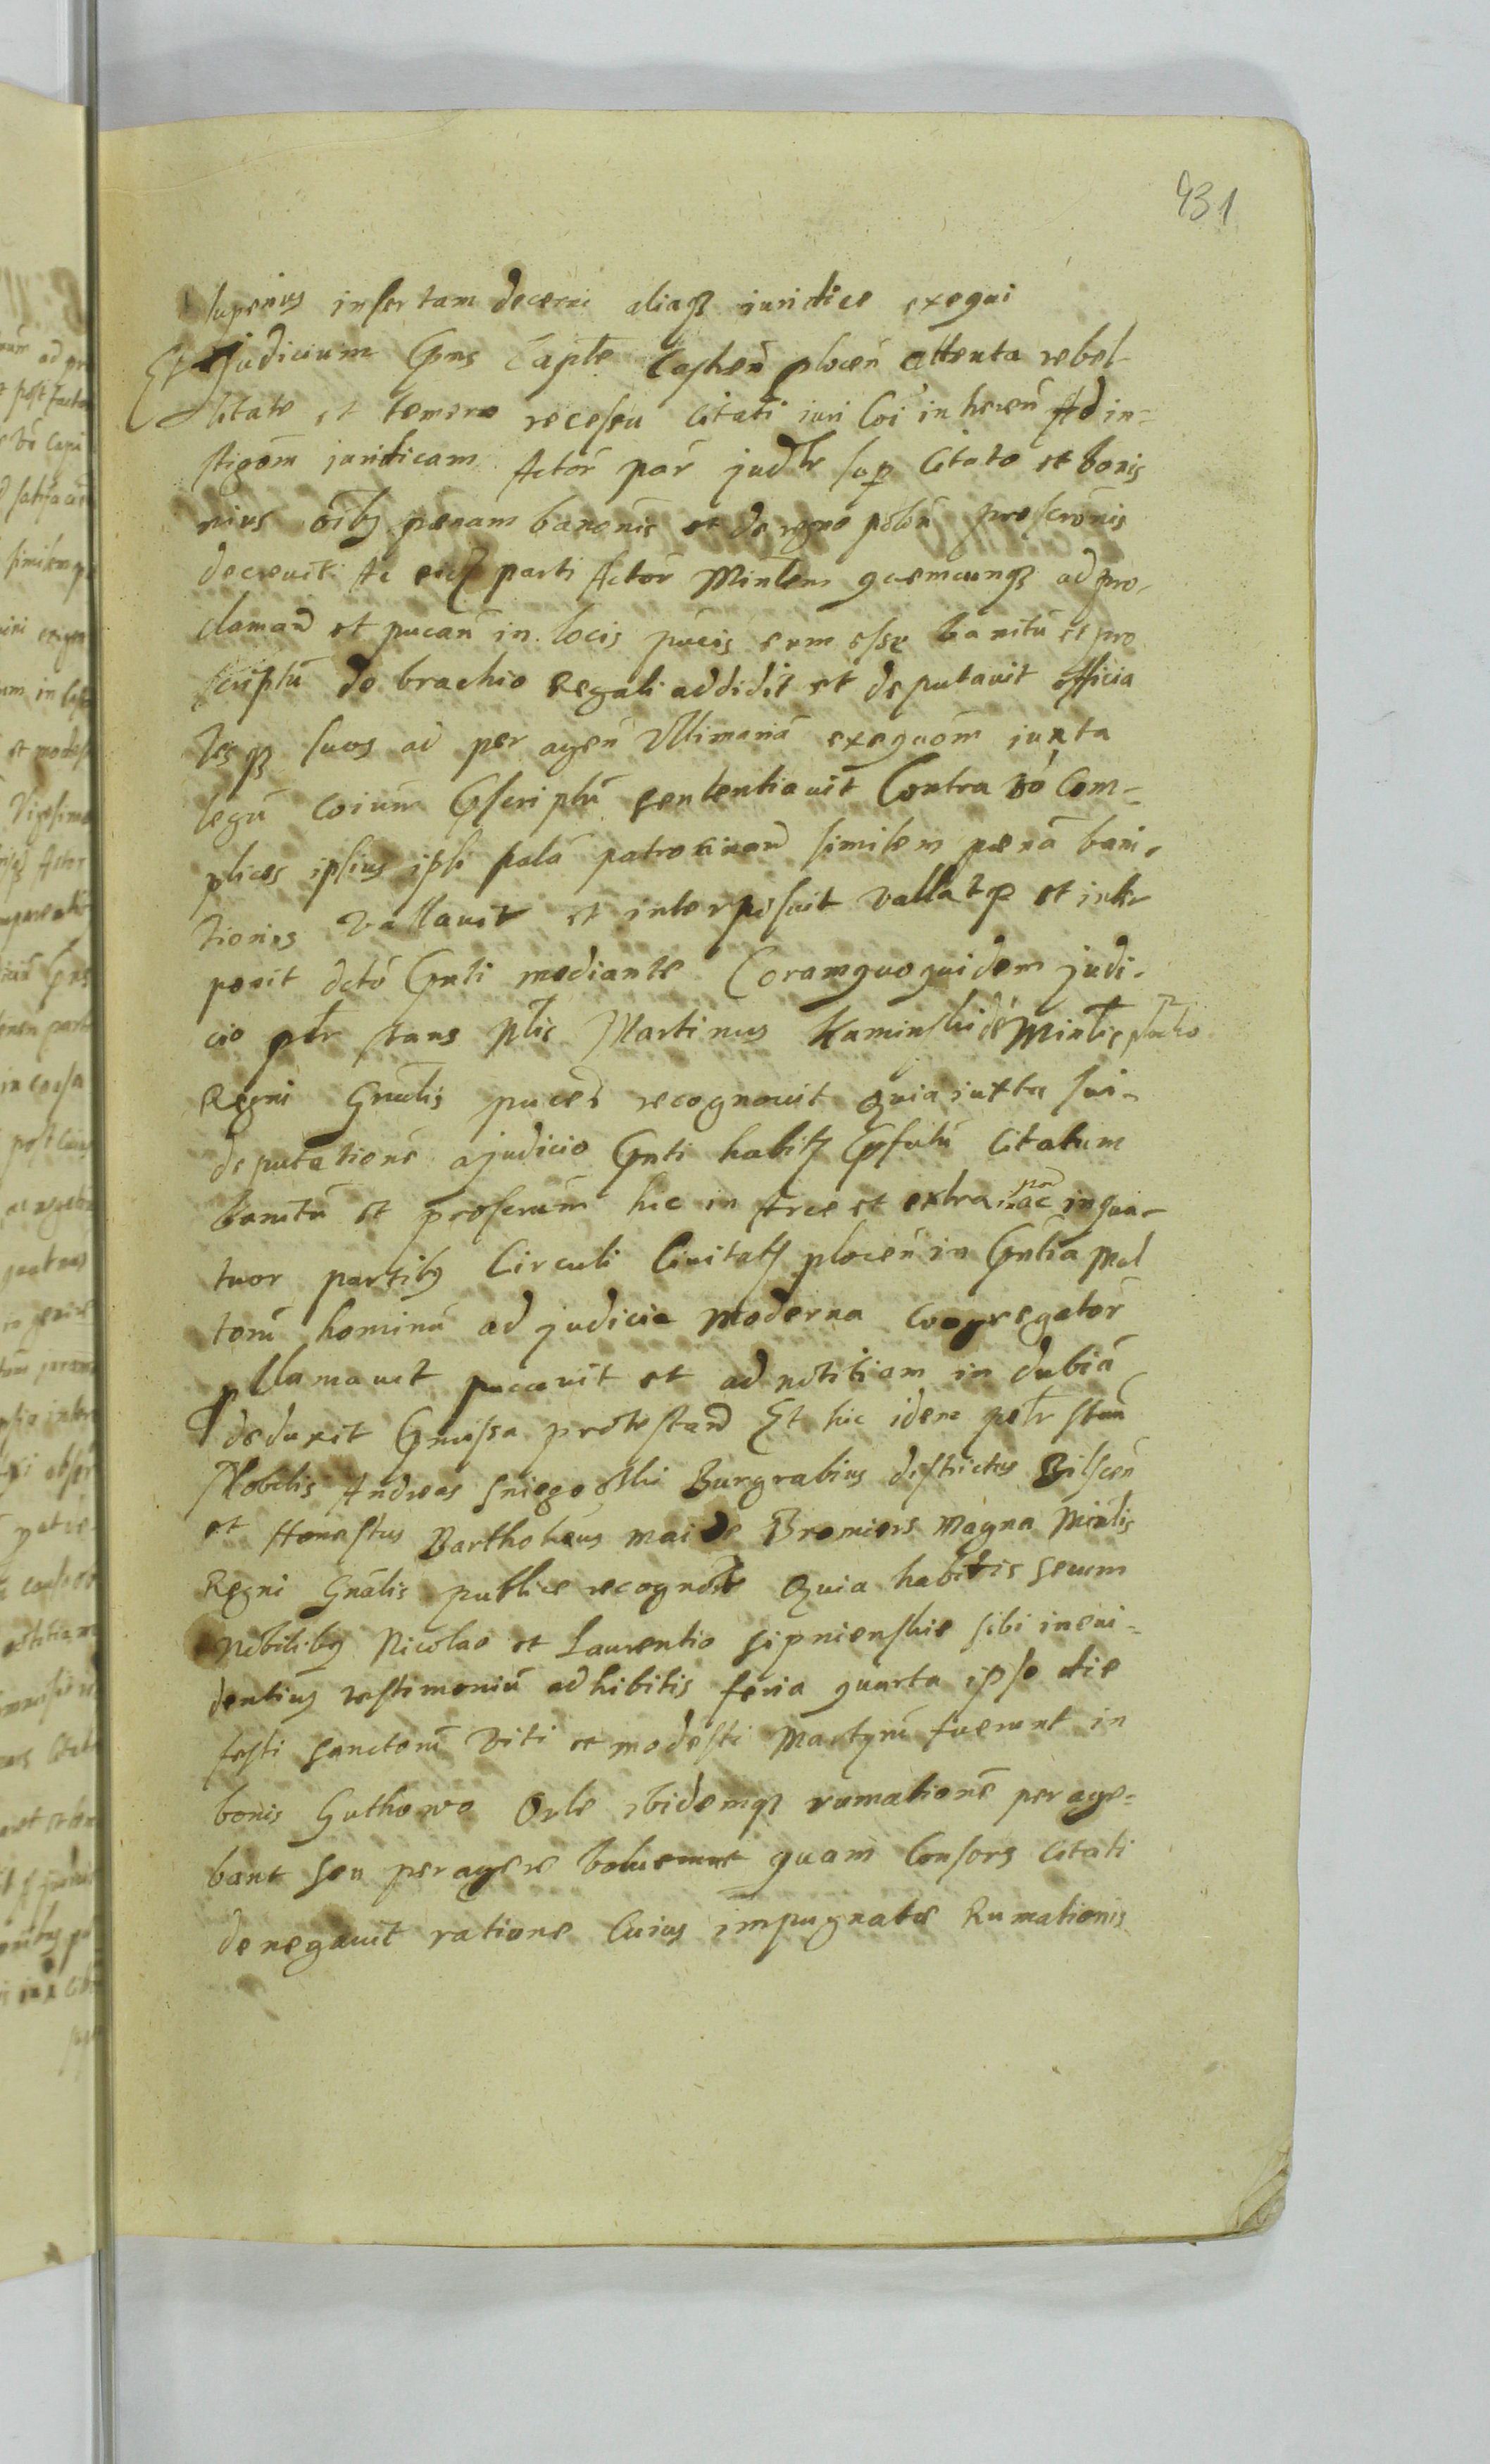 431
superius insertam decerni aliaqz iuridice exequi
Et Judicium Gns Captle Castren plocen attenta rebel-
litate et temere recessu Citati iuri Coi inhaeren Ad in-
stigom juridicam Actor par judlr sup Citato et bonis
eius oibq paenam banonis et de regno polon proscronis
decrevit Ac eidz parti Actor Mintem quemcunqz ad pro-
clamand et pucand in locis pucis eum esse banitu et pro
scriptu de brachio Regali addidit et deputavit officia
lesqz suos ad peragen Ultimaria exequom iuxta
legu Coium Gscriptu sententiavit Contra vo Com-
plices ipsius ipsi pala patrocinand similem paena bani-
tionis vallavit et interposuit vallatqz et inter
ponit dcto Gnti mediante Coramquoquidem judi-
cio pntr stans ptis Martinus Kaminski de Minlis
Regni Gnalis puce recognovit Quia iuxta sui
deputatione ajudicio Gnti habitz Gpfatu Citatum
banitu et proscrum hic in Arce et extra in quar-
tuor partibq Circuli Civitatz plocen in Gntia mul
toru hominu ad judicia moderna Congregator
pclamavit pucavit et ad notitiam indubia
deduxit Gmissa protestand Et hic idem petr stan
Nobilis Andreas Sniegoczki Burgrabius districtus Bilscen
et Honestus Bartholeus Maide Bromierz Magna Minlis
Regni Gnalis publice recognovt Quia habitis secum
Nobilibq Nicolao et Laurentio Sipnienskie sibi in evi-
dentius testimoniu adhibitis feria quarta ipso die
festi Sanctoru Viti et modesti Martyru fuerunt in
bonis Guthowo Orle ibidemqz rumatione perage-
bant seu peragere quam Consors Citati
denegavit ratione Cuius impugnatae Rumationis